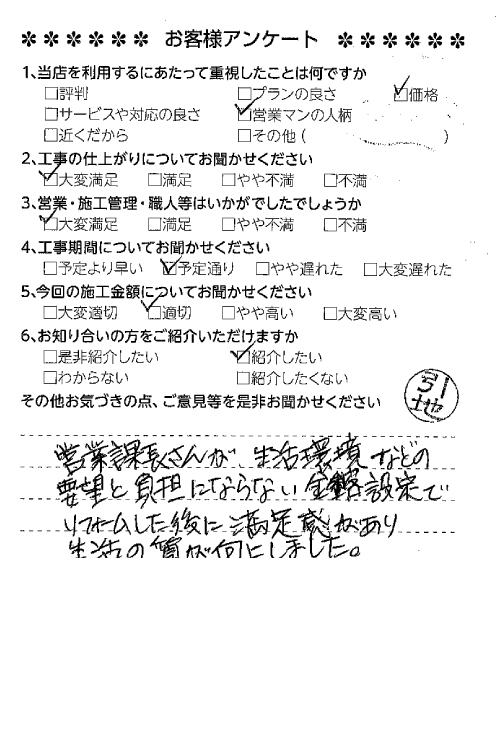 ✽✽✽✽✽✽ お客様アンケート ✽✽✽✽✽✽
1、当店を利用するにあたって重視したことは何ですか
□評判 □プランの良さ ☑価格
□サービスや対応の良さ ☑営業マンの人柄
□近くだから □その他 ( )
2、工事の仕上がりについてお聞かせください
☑大変満足 □満足 □やや不満 □不満
3、営業・施工管理・職人等はいかがでしたでしょうか
☑大変満足 □満足 □やや不満 □不満
4、工事期間についてお聞かせください
□予定より早い ☑予定通り □やや遅れた □大変遅れた
5、今回の施工金額についてお聞かせください
□大変適切 ☑適切 □やや高い □大変高い
6、お知り合いの方をご紹介いただけますか
□是非紹介したい ☑紹介したい
□わからない □紹介したくない
その他お気づきの点、ご意見等を是非お聞かせください
引地
営業課長さんが 生活環境などの
要望と負担にならない金額設定で
リフォームした後に満足感があり
生活の質が向上しました。